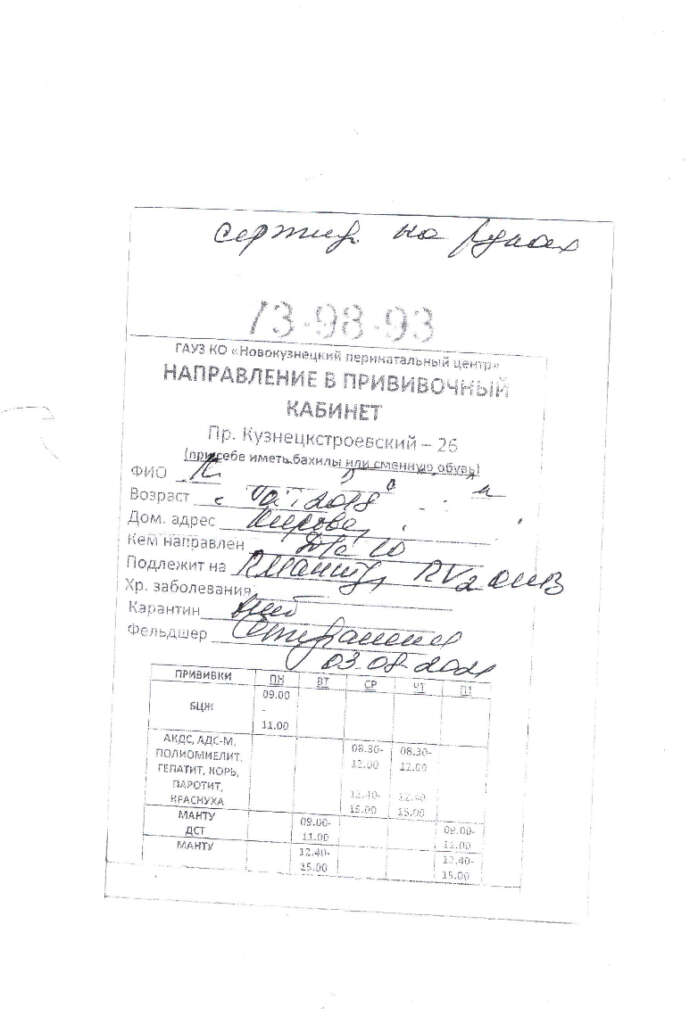 сертиф. на руках
73-98-93
ГАУЗ КО «Новокузнецкий перинатальный центр»
НАПРАВЛЕНИЕ В ПРИВИВОЧНЫЙ
КАБИНЕТ
Пр. Кузнецкстроевский – 26
(при себе иметь бахилы или сменную обувь)
ФИО
Возраст 2018
Дом. адрес Кирова
Кем направлен
Подлежит на RМанту, RV2
Хр. заболевания
Карантин
Фельдшер
03.08.2021
ПРИВИВКИ ПН ВТ СР ЧТ ПТ
БЦЖ 09.00 - 11.00
АКДС, АДС-М, ПОЛИОМИЕЛИТ, ГЕПАТИТ, КОРЬ, ПАРОТИТ, КРАСНУХА 08.30-12.00 12.40-15.00 08.30-12.00 12.40-15.00
МАНТУ ДСТ 09.00-11.00 09.00-11.00
МАНТУ 12.40-15.00 12.40-15.00